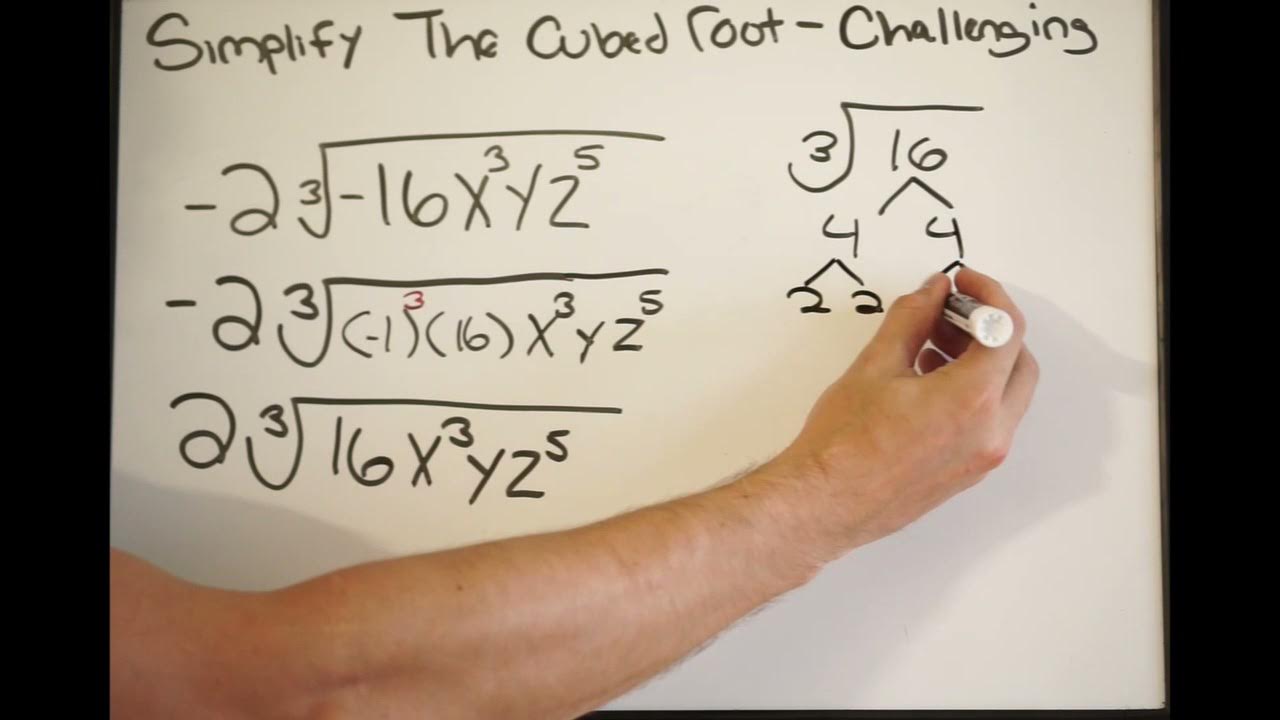 Simplify The Cubed root - Challenging
-2∛-16X³YZ⁵
-2∛(-1)³(16)X³YZ⁵
2∛16X³YZ⁵
∛16
4 4
2 2